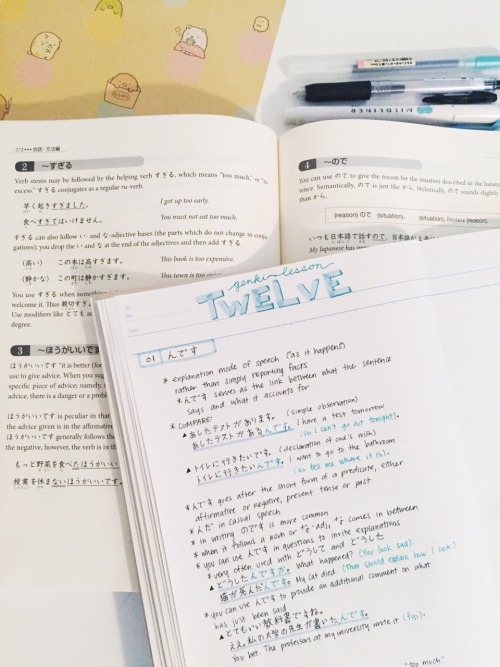 MILDLINER
272
会話・文法編
2 〜すぎる
Verb stems may be followed by the helping verb すぎる, which means "too much,"
excess." すぎる conjugates as a regular ru-verb.
早く起きすぎました。 I get up too early.
食べすぎてはいけません。 You must not eat too much.
すぎる can also follow い- and な-adjective bases (the parts which do not change in
gations); you drop the い and な at the end of the adjectives and then add すぎる.
(高い) この本は高すぎます。 This book is too expensive.
(静かな) この町は静かすぎます。 This town is too
You use すぎる when something
welcome it. Thus 親切すぎ
Use modifiers like とても
degree.
3 〜ほうがいいです
ほうがいいです "it is better
to use to give advice. When you
specific piece of advice; namely,
advice, there is a danger or a
ほうがいいです is peculiar in that
the advice given is in the affirmative
ほうがいいです generally follows the
the negative, however, the verb is in the
もっと野菜を食べたほうがいい
授業を休まないほうがいいです。
4 〜ので
You can use ので to give the reason for the situation described in the balance
Semantically, ので is just like から. Stylistically, ので sounds slightly
than から.
(reason) ので (situation). (situation), because (reason).
いつも日本語で話すので、日本語が
My Japanese has
genki lesson
TWELVE
01 んです
* explanation mode of speech ("as it happens")
rather than simply reporting facts
* んです serves as the link between what the sentence
says and what it accounts for
* COMPARE:
▲ あしたテストがあります。 (simple observation)
あしたテストがあるんです。 I have a test tomorrow
(so I can't go out tonight).
▲ トイレに行きたいです。 (declaration of one's wish)
トイレに行きたいんです。 I want to go to the bathroom
(so tell me where it is).
* んです goes after the short form of a predicate, either
affirmative or negative, present tense or past
* んだ in casual speech
* in writing のです is more common
* when it follows a noun or な-adj, な comes in between
* you can use んです in questions to invite explanations
* very often used with どうして and どうした
▲ どうしたんですか。 What happened? (You look sad)
猫が死んだんです。 My cat died. (That should explain how I look.)
* you can use んです to provide an additional comment on what
has just been said
▲ とてもいい教科書ですね。
ええ。私の大学の先生が書いたんです。
You bet. The professors at my university wrote it (fyi).
"too much"